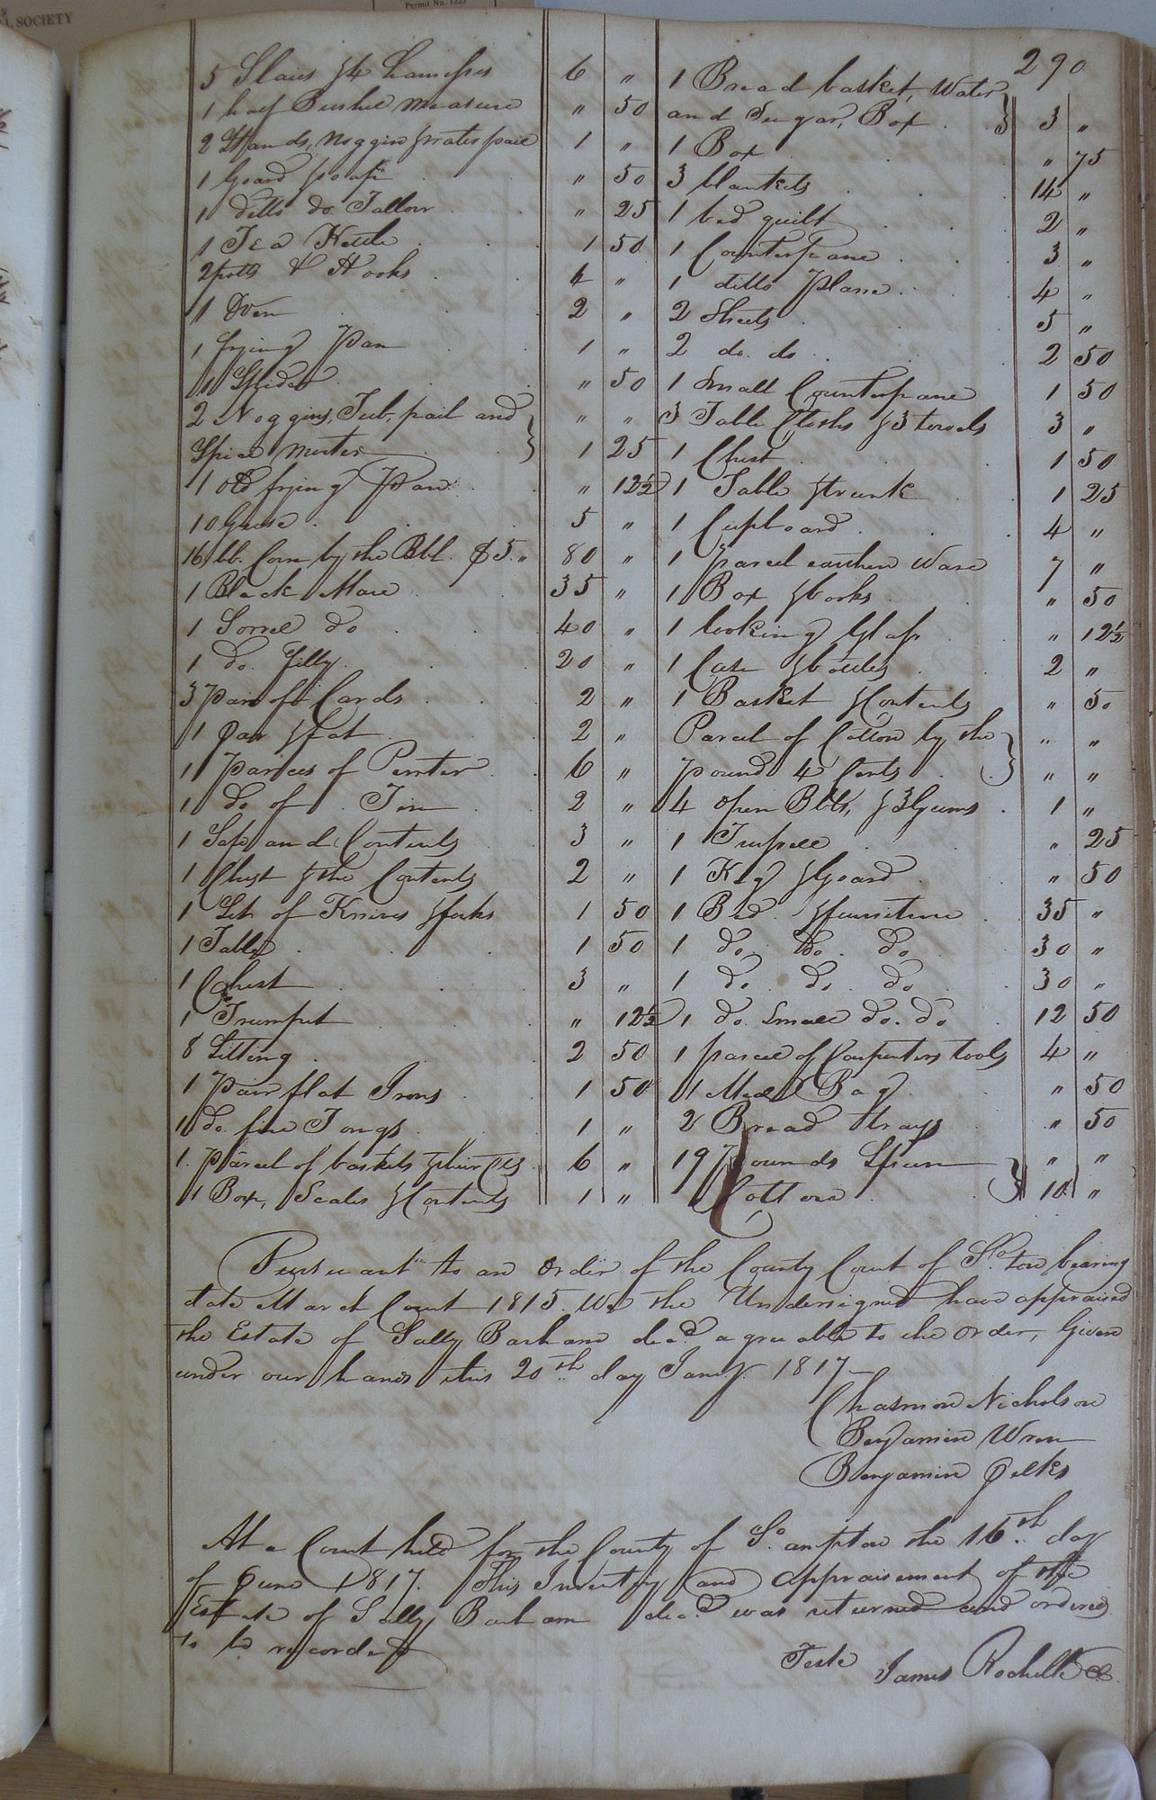 L SOCIETY
Permit No. 1225
290
5 Slaies & 4 harnesses 6 "
1 half Bushel Measure " 50
2 Stands, Noggin & water pail 1 "
1 Goard & soap " 50
1 ditto do Tallow " 25
1 Tea Kettle 1 50
2 potts & Hooks 4 "
1 Oven 2 "
1 frying Pan 1 "
1 Spider " 50
2 Noggins, Tub, pail and " "
Spice Morter 1 25
1 old frying Pan " 12½
10 Geese 5 "
16 bb. Corn by the Bbl. $5 " 80 "
1 Black Mare 35 "
1 Sorrel do 40 "
1 do. filly 20 "
3 Pair of Cards 2 "
1 Jar & fat 2 "
1 Parcel of Pewter 6 "
1 do of Tin 2 "
1 Safe and Contents 3 "
1 Chest & the Contents 2 "
1 Set of Knives & forks 1 50
1 Table 1 50
1 Chest 3 "
1 Trumpet " 12½
8 Sitting 2 50
1 Pair flat Irons 1 50
1 do. fire Tongs 1 "
1 Parcel of baskets & their 6 "
1 Box, Scales & Contents 1 "
1 Bread basket, Water
and Sugar, Box 3 "
1 Box " 75
3 blankets 14 "
1 bed quilt 2 "
1 Counterpane 3 "
1 ditto Plane 4 "
2 Sheets 5 "
2 do. do 2 50
1 Small Counterpane 1 50
3 Table Cloths & 3 towels 3 "
1 Chest 1 50
1 Table & trunk 1 25
1 Cupboard 4 "
1 parcel earthen Ware 7 "
1 Box & books " 50
1 looking Glass " 12½
1 Case & bottles 2 "
1 Basket & Contents " 50
Parcel of Cotton by the " "
pound 4 Cents " "
4 open Bbls, & 3 Gums 1 "
1 " 25
1 Keg & Goard " 50
1 Bed & furniture 35 "
1 do. do. do 30 "
1 do. do. do 30 "
1 do. Small do. do 12 50
1 parcel of Carpenters tools 4 "
1 Meal Bag " 50
2 Bread trays " 50
19 Pounds Spun " "
Cotton 10 "
Pursuant to an Order of the County Court of So.ton bearing
date March Court 1815. We the Undersigned have appraised
the Estate of Sally Barham decd. agreeable to the Order, Given
under our hands this 20th day Jany. 1817
Chasmon Nicholson
Benjamin Wren
Benjamin Jelks
At a Court held for the County of So.ampton the 16th day
of June 1817. This Inventory and Appraisement of the
Estate of Sally Barham decd. was returned and ordered
to be recorded
Teste James Rochelle CC.